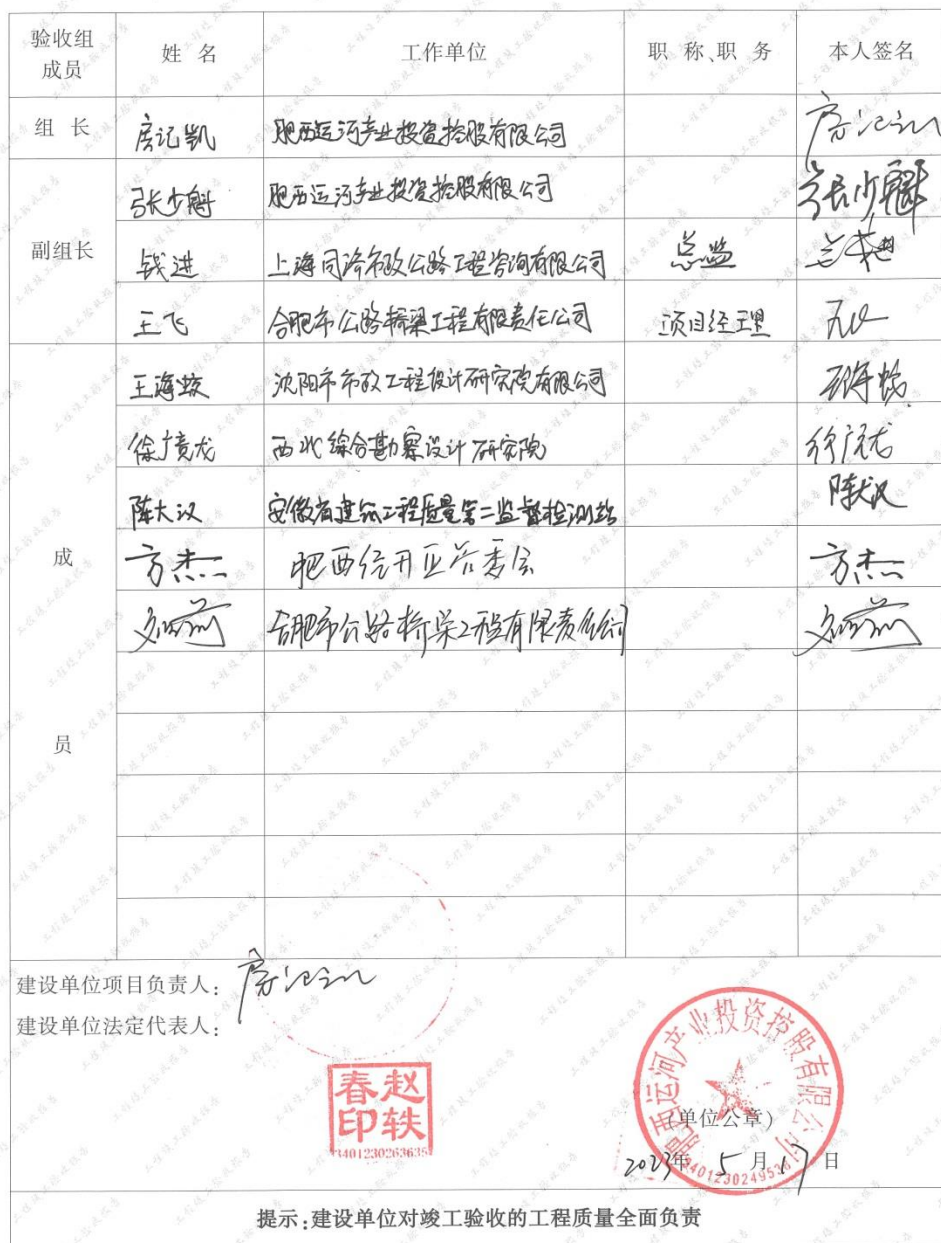 验收组成员 姓 名 工作单位 职 称、职 务 本人签名
组 长 房记凯 肥西运河产业投资控股有限公司
张少魁 肥西运河产业投资控股有限公司 张少魁
副组长 钱进 上海同济市政公路工程咨询有限公司 总监
王飞 合肥市公路桥梁工程有限责任公司 项目经理
王海蛟 沈阳市市政工程设计研究院有限公司
徐广龙 西北综合勘察设计研究院 徐广龙
陈大汉 安徽省建筑工程质量第二监督检测站 陈大汉
成 方杰 肥西经开区管委会 方杰
合肥市公路桥梁工程有限责任公司
员
建设单位项目负责人：
建设单位法定代表人：
赵轶春印
3401230263635
肥西运河产业投资控股有限公司
(单位公章)
2023年 5 月 17 日
提示：建设单位对竣工验收的工程质量全面负责
工程竣工验收报告